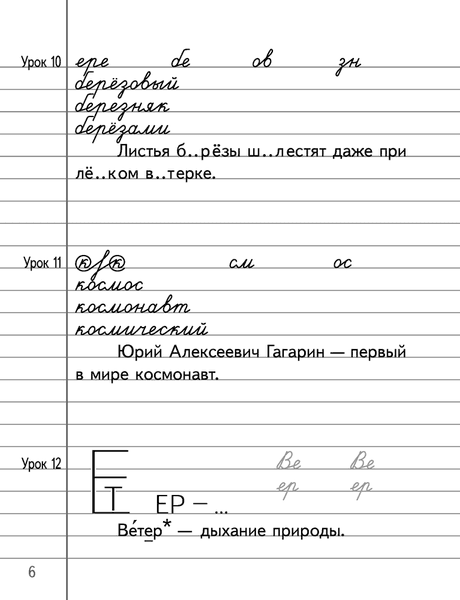 Урок 10 ере бе ов зн
берёзовый
березняк
берёзами
Листья б..рёзы ш..лестят даже при
лё..ком в..терке.
Урок 11 к к см ос
космос
космонавт
космический
Юрий Алексеевич Гагарин — первый
в мире космонавт.
Урок 12 Ве Ве
ер ер
Е Т ЕР — ...
Ве́тер* — дыхание природы.
6